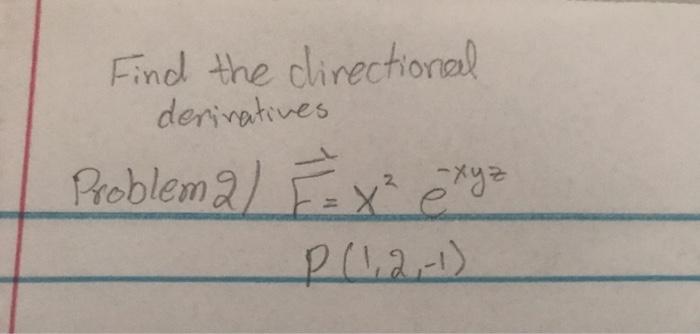 Find the directional
derivatives
Problem 2) F⃗ = x² e^-xyz
P(1,2,-1)